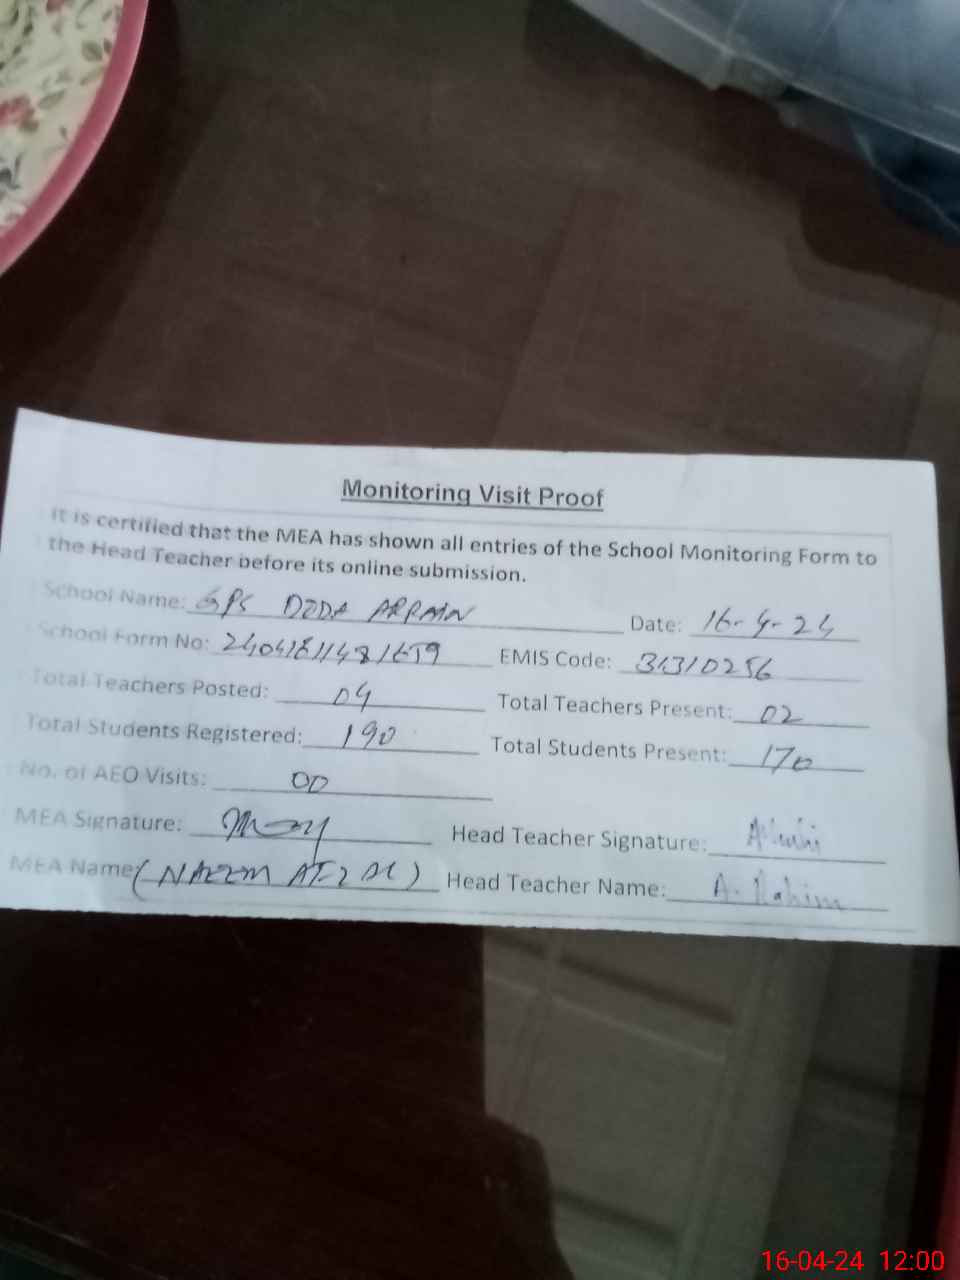 Monitoring Visit Proof
It is certified that the MEA has shown all entries of the School Monitoring Form to
the Head Teacher before its online submission.
School Name: GPS DODA ARRAIN Date: 16-4-24
School Form No: EMIS Code: 31310256
Total Teachers Posted: 04 Total Teachers Present: 02
Total Students Registered: 190 Total Students Present: 170
No. of AEO Visits: 00
MEA Signature: Head Teacher Signature:
MEA Name Head Teacher Name: A. Rahim
16-04-24 12:00